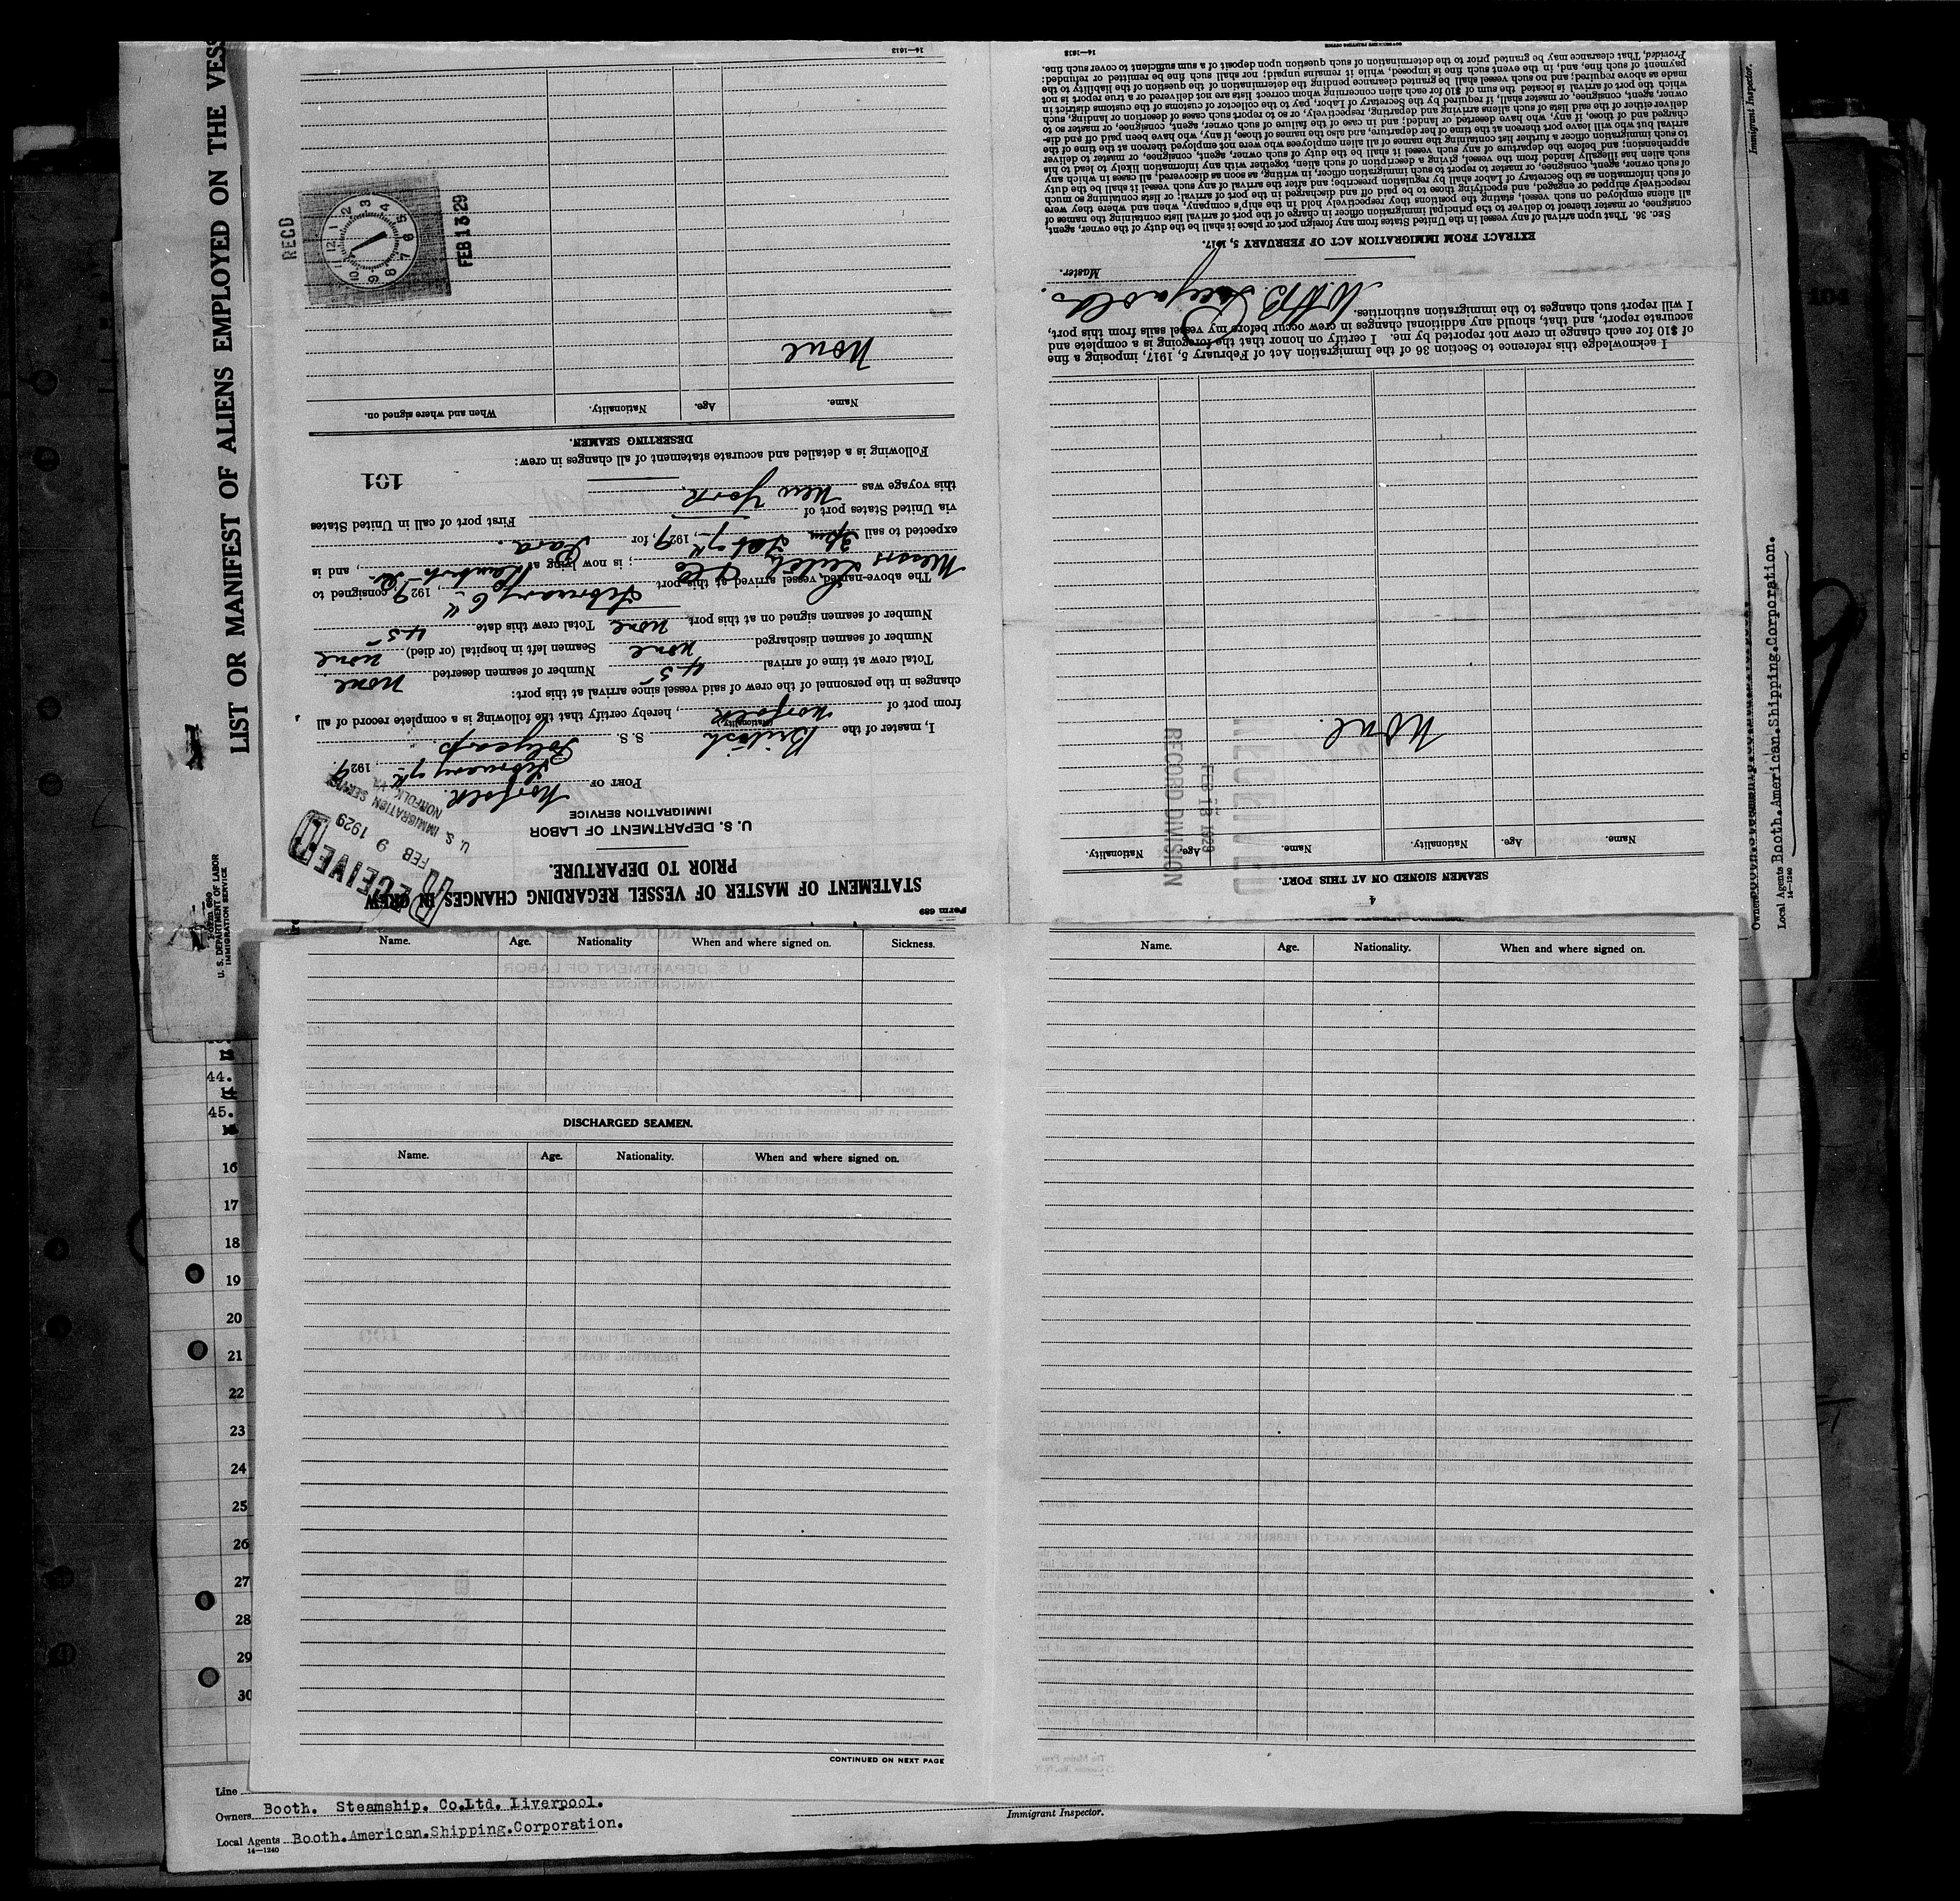 LIST OR MANIFEST OF ALIENS EMPLOYED ON THE VESS
Form 680
U. S. DEPARTMENT OF LABOR
IMMIGRATION SERVICE
Form 689
STATEMENT OF MASTER OF VESSEL REGARDING CHANGES IN CREW
PRIOR TO DEPARTURE.
U. S. DEPARTMENT OF LABOR
IMMIGRATION SERVICE
RECEIVED
FEB 9 1929
U. S. IMMIGRATION SERVICE
NORFOLK, VA
PORT OF Norfolk.
February 7th, 1929.
I, master of the British S. S. Polycarp.
(Nationality)
from port of Norfolk, hereby certify that the following is a complete record of all
changes in the personnel of the crew of said vessel since arrival at this port:
Total crew at time of arrival 45 Number of seamen deserted none
Number of seamen discharged none Seamen left in hospital (or died) none
Number of seamen signed on at this port none Total crew this date 45
The above-named vessel arrived at this port February 6th, 1929, consigned to
Messrs ; is now lying at , and is
expected to sail 2pm Feb 7th, 1929, for Para.
via United States port of First port of call in United States
this voyage was New York.
Following is a detailed and accurate statement of all changes in crew:
101
DESERTING SEAMEN.
Name. Age. Nationality. When and where signed on.
None
RECD
FEB 13 29
14—1613
4
SEAMEN SIGNED ON AT THIS PORT.
Name. Age. Nationality. Name. Age. Nationality.
None.
RECEIVED
FEB 13 1929
RECORD DIVISION
I acknowledge this reference to Section 36 of the Immigration Act of February 5, 1917, imposing a fine
of $10 for each change in crew not reported by me. I certify on honor that the foregoing is a complete and
accurate report, and that, should any additional changes in crew occur before my vessel sails from this port,
I will report such changes to the immigration authorities.
Master.
EXTRACT FROM IMMIGRATION ACT OF FEBRUARY 5, 1917.
SEC. 36. That upon arrival of any vessel in the United States from any foreign port or place it shall be the duty of the owner, agent,
consignee, or master thereof to deliver to the principal immigration officer in charge of the port of arrival lists containing the names of
all aliens employed on such vessel, stating the positions they respectively hold in the ship's company, when and where they were
respectively shipped or engaged, and specifying those to be paid off and discharged in the port of arrival; or lists containing so much
of such information as the Secretary of Labor shall by regulation prescribe; and after the arrival of any such vessel it shall be the duty
of such owner, agent, consignee, or master to report to such immigration officer, in writing, as soon as discovered, all cases in which any
such alien has illegally landed from the vessel, giving a description of such alien, together with any information likely to lead to his
apprehension; and before the departure of any such vessel it shall be the duty of such owner, agent, consignee, or master to deliver
to such immigration officer a further list containing the names of all alien employees who were not employed thereon at the time of the
arrival but who will leave port thereon at the time of her departure, and also the names of those, if any, who have been paid off and dis-
charged and of those, if any, who have deserted or landed; and in case of the failure of such owner, agent, consignee, or master so to
deliver either of the said lists of such aliens arriving and departing, respectively, or so to report such cases of desertion or landing, such
owner, agent, consignee, or master shall, if required by the Secretary of Labor, pay to the collector of customs of the customs district in
which the port of arrival is located the sum of $10 for each alien concerning whom correct lists are not delivered or a true report is not
made as above required; and no such vessel shall be granted clearance pending the determination of the question of the liability to the
payment of such fine, and, in the event such fine is imposed, while it remains unpaid; nor shall such fine be remitted or refunded:
Provided, That clearance may be granted prior to the determination of such question upon deposit of a sum sufficient to cover such fine.
14—1613
GOVERNMENT PRINTING OFFICE
Immigrant Inspector.
Local Agents Booth.American.Shipping.Corporation.
14—1240
104
Name. Age. Nationality When and where signed on. Sickness.
DISCHARGED SEAMEN.
Name. Age. Nationality. When and where signed on.
CONTINUED ON NEXT PAGE
Name. Age. Nationality. When and where signed on.
44.
45.
16
17
18
19
20
21
22
23
24
25
26
27
28
29
30
Line
Owners Booth. Steamship. Co.Ltd. Liverpool.
Local Agents Booth.American.Shipping.Corporation.
14—1240
Immigrant Inspector.